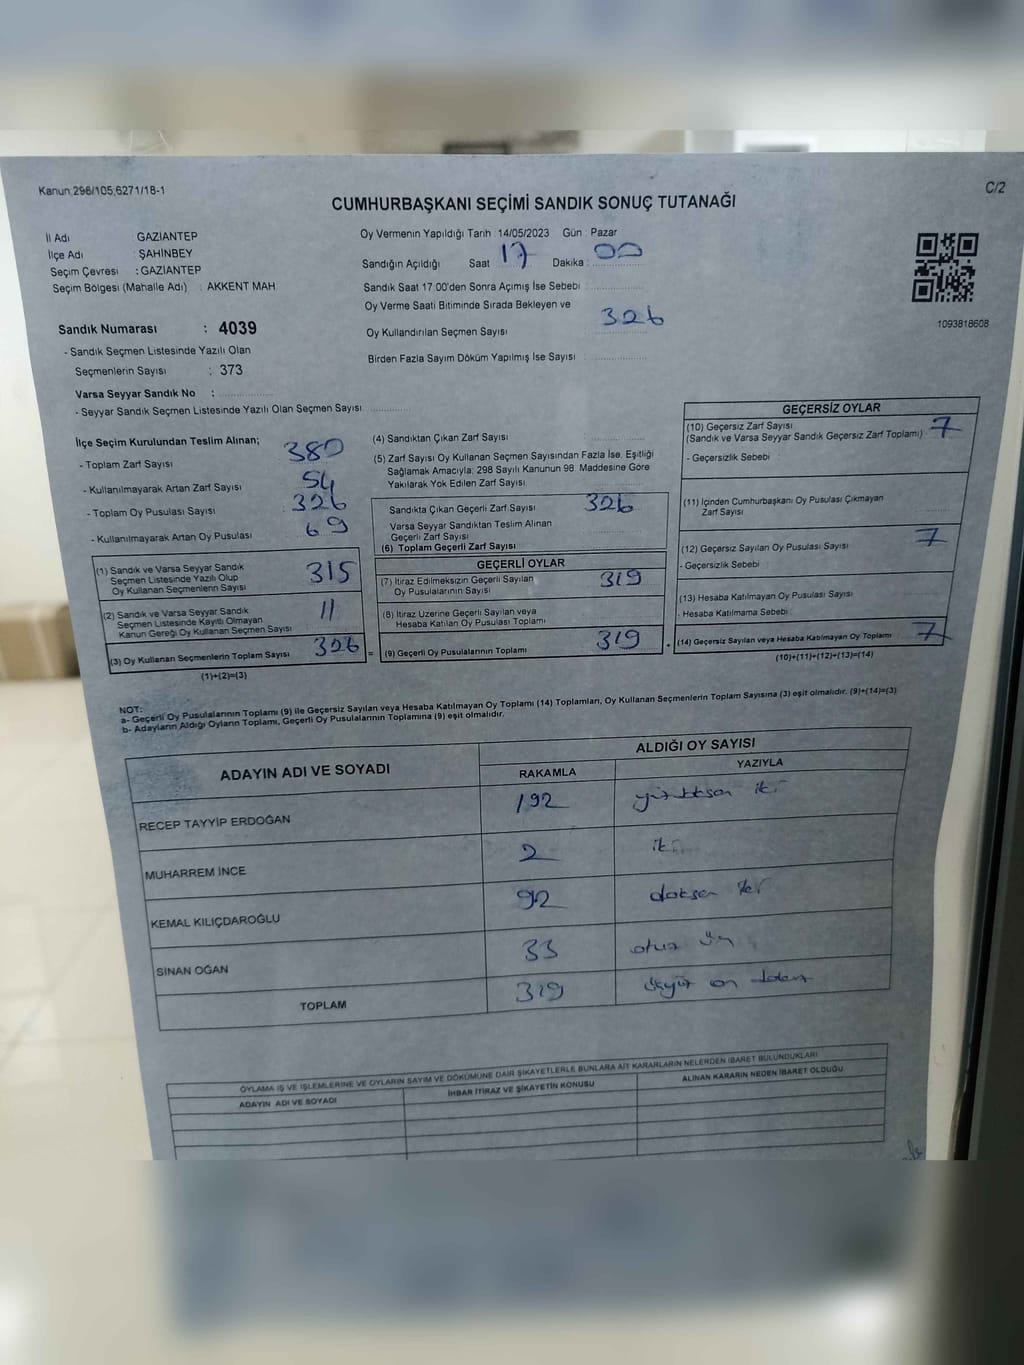 Kanun 298/105,6271/18-1
C/2
CUMHURBAŞKANI SEÇİMİ SANDIK SONUÇ TUTANAĞI
İl Adı GAZİANTEP
İlçe Adı : ŞAHİNBEY
Seçim Çevresi : GAZİANTEP
Seçim Bölgesi (Mahalle Adı) : AKKENT MAH.
Oy Vermenin Yapıldığı Tarih : 14/05/2023 Gün : Pazar
Sandığın Açıldığı Saat 17 Dakika : 00
Sandık Saat 17:00'den Sonra Açımış İse Sebebi :
Oy Verme Saati Bitiminde Sırada Bekleyen ve
Oy Kullandırılan Seçmen Sayısı 326
Birden Fazla Sayım Döküm Yapılmış İse Sayısı :
1093818608
Sandık Numarası : 4039
- Sandık Seçmen Listesinde Yazılı Olan
Seçmenlerin Sayısı : 373
Varsa Seyyar Sandık No :
- Seyyar Sandık Seçmen Listesinde Yazılı Olan Seçmen Sayısı
İlçe Seçim Kurulundan Teslim Alınan;
- Toplam Zarf Sayısı 380
- Kullanılmayarak Artan Zarf Sayısı 54
- Toplam Oy Pusulası Sayısı : 326
- Kullanılmayarak Artan Oy Pusulası 69
(1) Sandık ve Varsa Seyyar Sandık
Seçmen Listesinde Yazılı Olup
Oy Kullanan Seçmenlerin Sayısı 315
(2) Sandık ve Varsa Seyyar Sandık
Seçmen Listesinde Kayıtlı Olmayan
Kanun Gereği Oy Kullanan Seçmen Sayısı 11
(3) Oy Kullanan Seçmenlerin Toplam Sayısı 326 =
(1)+(2)=(3)
(4) Sandıktan Çıkan Zarf Sayısı
(5) Zarf Sayısı Oy Kullanan Seçmen Sayısından Fazla İse, Eşitliği
Sağlamak Amacıyla; 298 Sayılı Kanunun 98. Maddesine Göre
Yakılarak Yok Edilen Zarf Sayısı
Sandıkta Çıkan Geçerli Zarf Sayısı 326
Varsa Seyyar Sandıktan Teslim Alınan
Geçerli Zarf Sayısı
(6) Toplam Geçerli Zarf Sayısı
GEÇERLİ OYLAR
(7) İtiraz Edilmeksizin Geçerli Sayılan
Oy Pusulalarının Sayısı 319
(8) İtiraz Üzerine Geçerli Sayılan veya
Hesaba Katılan Oy Pusulası Toplamı
(9) Geçerli Oy Pusulalarının Toplamı 319
GEÇERSİZ OYLAR
(10) Geçersiz Zarf Sayısı
(Sandık ve Varsa Seyyar Sandık Geçersiz Zarf Toplamı) 7
- Geçersizlik Sebebi :
(11) İçinden Cumhurbaşkanı Oy Pusulası Çıkmayan
Zarf Sayısı
(12) Geçersiz Sayılan Oy Pusulası Sayısı 7
- Geçersizlik Sebebi
(13) Hesaba Katılmayan Oy Pusulası Sayısı
- Hesaba Katılmama Sebebi :
(14) Geçersiz Sayılan veya Hesaba Katılmayan Oy Toplamı 7
(10)+(11)+(12)+(13)=(14)
NOT:
a- Geçerli Oy Pusulalarının Toplamı (9) ile Geçersiz Sayılan veya Hesaba Katılmayan Oy Toplamı (14) Toplamları, Oy Kullanan Seçmenlerin Toplam Sayısına (3) eşit olmalıdır. (9)+(14)=(3)
b- Adayların Aldığı Oyların Toplamı, Geçerli Oy Pusulalarının Toplamına (9) eşit olmalıdır.
ADAYIN ADI VE SOYADI
ALDIĞI OY SAYISI
RAKAMLA YAZIYLA
RECEP TAYYİP ERDOĞAN 192 yüzdoksan iki
MUHARREM İNCE 2 iki
KEMAL KILIÇDAROĞLU 92 doksan iki
SİNAN OĞAN 33 otuz üç
TOPLAM 319 üçyüz on dokuz
OYLAMA İŞ VE İŞLEMLERİNE VE OYLARIN SAYIM VE DÖKÜMÜNE DAİR ŞİKAYETLERLE BUNLARA AİT KARARLARIN NELERDEN İBARET BULUNDUKLARI
ADAYIN ADI VE SOYADI İHBAR İTİRAZ VE ŞİKAYETİN KONUSU ALINAN KARARIN NEDEN İBARET OLDUĞU